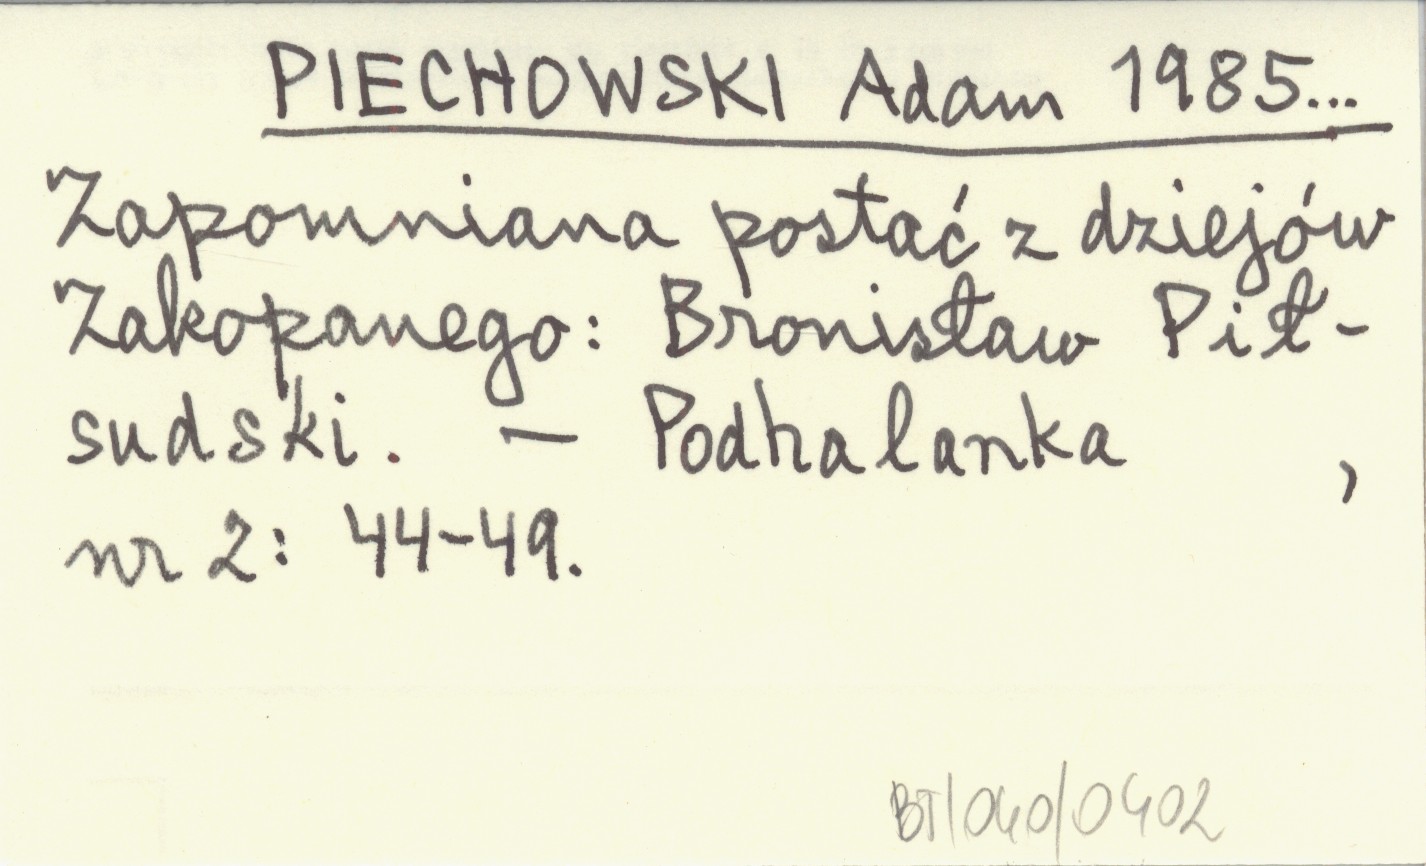 PIECHOWSKI Adam 1985...
Zapomniana postać z dziejów
Zakopanego: Bronisław Pił-
sudski. — Podhalanka ,
nr 2: 44-49.
BT/040/0402